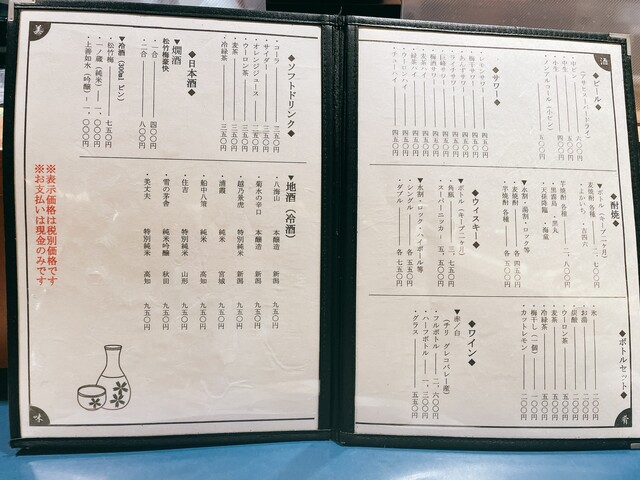 酒
◆ビール◆
(アサヒスーパードライ)
・中生
・ノンアルコール(小ビン)
◆サワー◆
・レモンサワー 四五〇
・梅干サワー 四五〇
・巨峰サワー 四五〇
・梅酒サワー 四五〇
・麦茶ハイ 四五〇
・緑茶ハイ 四五〇
・ウーロンハイ 四五〇
◆酎焼◆
▼ボトル(キープ二ヶ月)
麦焼酎 各種 一、七〇〇円
・よかいち ・吉四六
芋焼酎 各種 二、八〇〇円
・黒霧島 ・黒丸
・天孫降臨 ・海童
▼水割・湯割・ロック等
・麦焼酎 各種 各 四五〇円
・芋焼酎 各種 各 五五〇円
◆ウイスキー◆
▼ボトル(キープ二ヶ月)
・角瓶 三、七五〇円
・スーパーニッカ 五、五〇〇円
▼水割・ロック・ハイボール等
・シングル 各 五五〇円
・ダブル 各 七五〇円
◆ボトルセット◆
・氷 二〇〇円
・お湯 二〇〇円
・炭酸
・ウーロン茶 五五〇円
・麦茶 五五〇円
・冷緑茶 五五〇円
・梅干し(一個) 一〇〇円
・カットレモン 二〇〇円
◆ワイン◆
▼赤/白
(チリ グレコバレー産)
・フルボトル 二、六〇〇円
・ハーフボトル 一、三〇〇円
・グラス 五五〇円
肴
美
◆ソフトドリンク◆
・コーラ 三五〇円
・サイダー 三五〇円
・オレンジジュース 三五〇円
・ウーロン茶 三五〇円
・麦茶 三五〇円
・冷緑茶 三五〇円
◆日本酒◆
▼燗酒
松竹梅豪快
・一合 四〇〇円
・二合 八〇〇円
▼冷酒(300ml ビン)
・松竹梅 七五〇円
・一ノ蔵(純米) 一、〇〇〇円
・上善如水(吟醸) 一、〇〇〇円
▼地酒(冷酒)
・八海山 本醸造 新潟 九五〇円
・菊水の辛口 本醸造 新潟 九五〇円
・越乃景虎 特別純米 新潟 九五〇円
・浦霞 純米 宮城 九五〇円
・船中八策 純米 高知 九五〇円
・住吉 特別純米 山形 九五〇円
・雪の茅舎 純米吟醸 秋田 九五〇円
・美丈夫 特別純米 高知 九五〇円
※表示価格は税別価格です
※お支払いは現金のみです
味